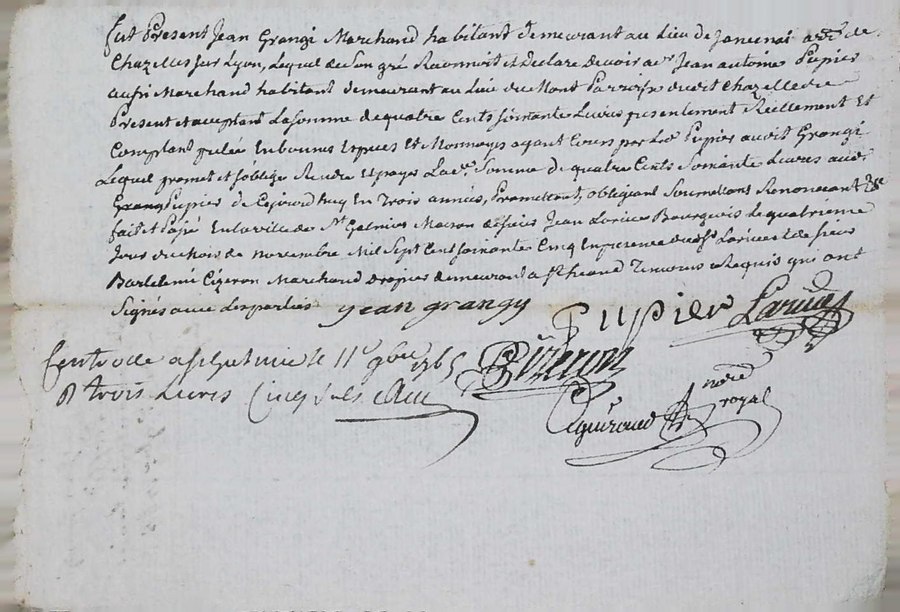 fut Present Jean Grangi Marchand habitant demeurant au Lieu de
Chazelles sur Lyon, Lequel de son gré Reconnoit et declare devoir a Jean antoine Pupier
aussi Marchand habitant demeurant au Lieu du Mont Parroisse dudit Chazelle
Present et acceptant La somme de quatre Cents soixante Livres presentement Réellement Et
Comptant En bonnes Espèces Et Monnoyes ayant Cours par Led Pupier audit Grangi
Lequel promet et s'oblige Rendre et payer Lade somme de quatre Cents Soixante Livres aud
Pupier de Cejourd'huy En Trois années, Promettant, obligeant Soumettant Renonceant &
fait et Passé En la ville de St Galmier Maison de sieur Jean Bourgeois Le quatrieme
Jour du Mois de novembre Mil Sept Cent soixante Cinq En presence dud sr et de sieur
Bartelemi Cizeron Marchand drapier demeurant a Temoins Requis qui ont
Signés avec Les parties
jean grangy
Pupier
Cizeron
Eguiraud
nore
royal
a st Galmie le 11e 9bre 1765
R trois Livres Cinq sols